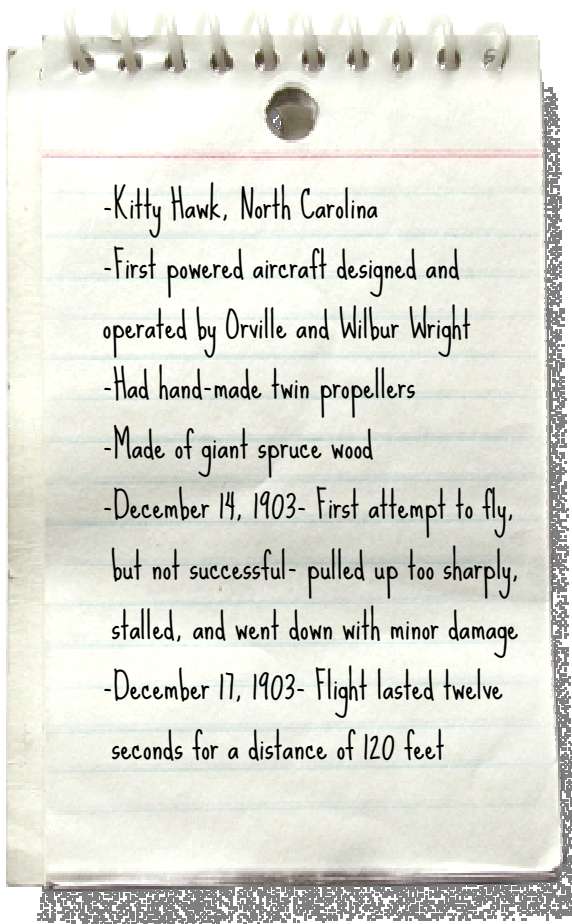 -Kitty Hawk, North Carolina
-First powered aircraft designed and
operated by Orville and Wilbur Wright
-Had hand-made twin propellers
-Made of giant spruce wood
-December 14, 1903- First attempt to fly,
but not successful- pulled up too sharply,
stalled, and went down with minor damage
-December 17, 1903- Flight lasted twelve
seconds for a distance of 120 feet